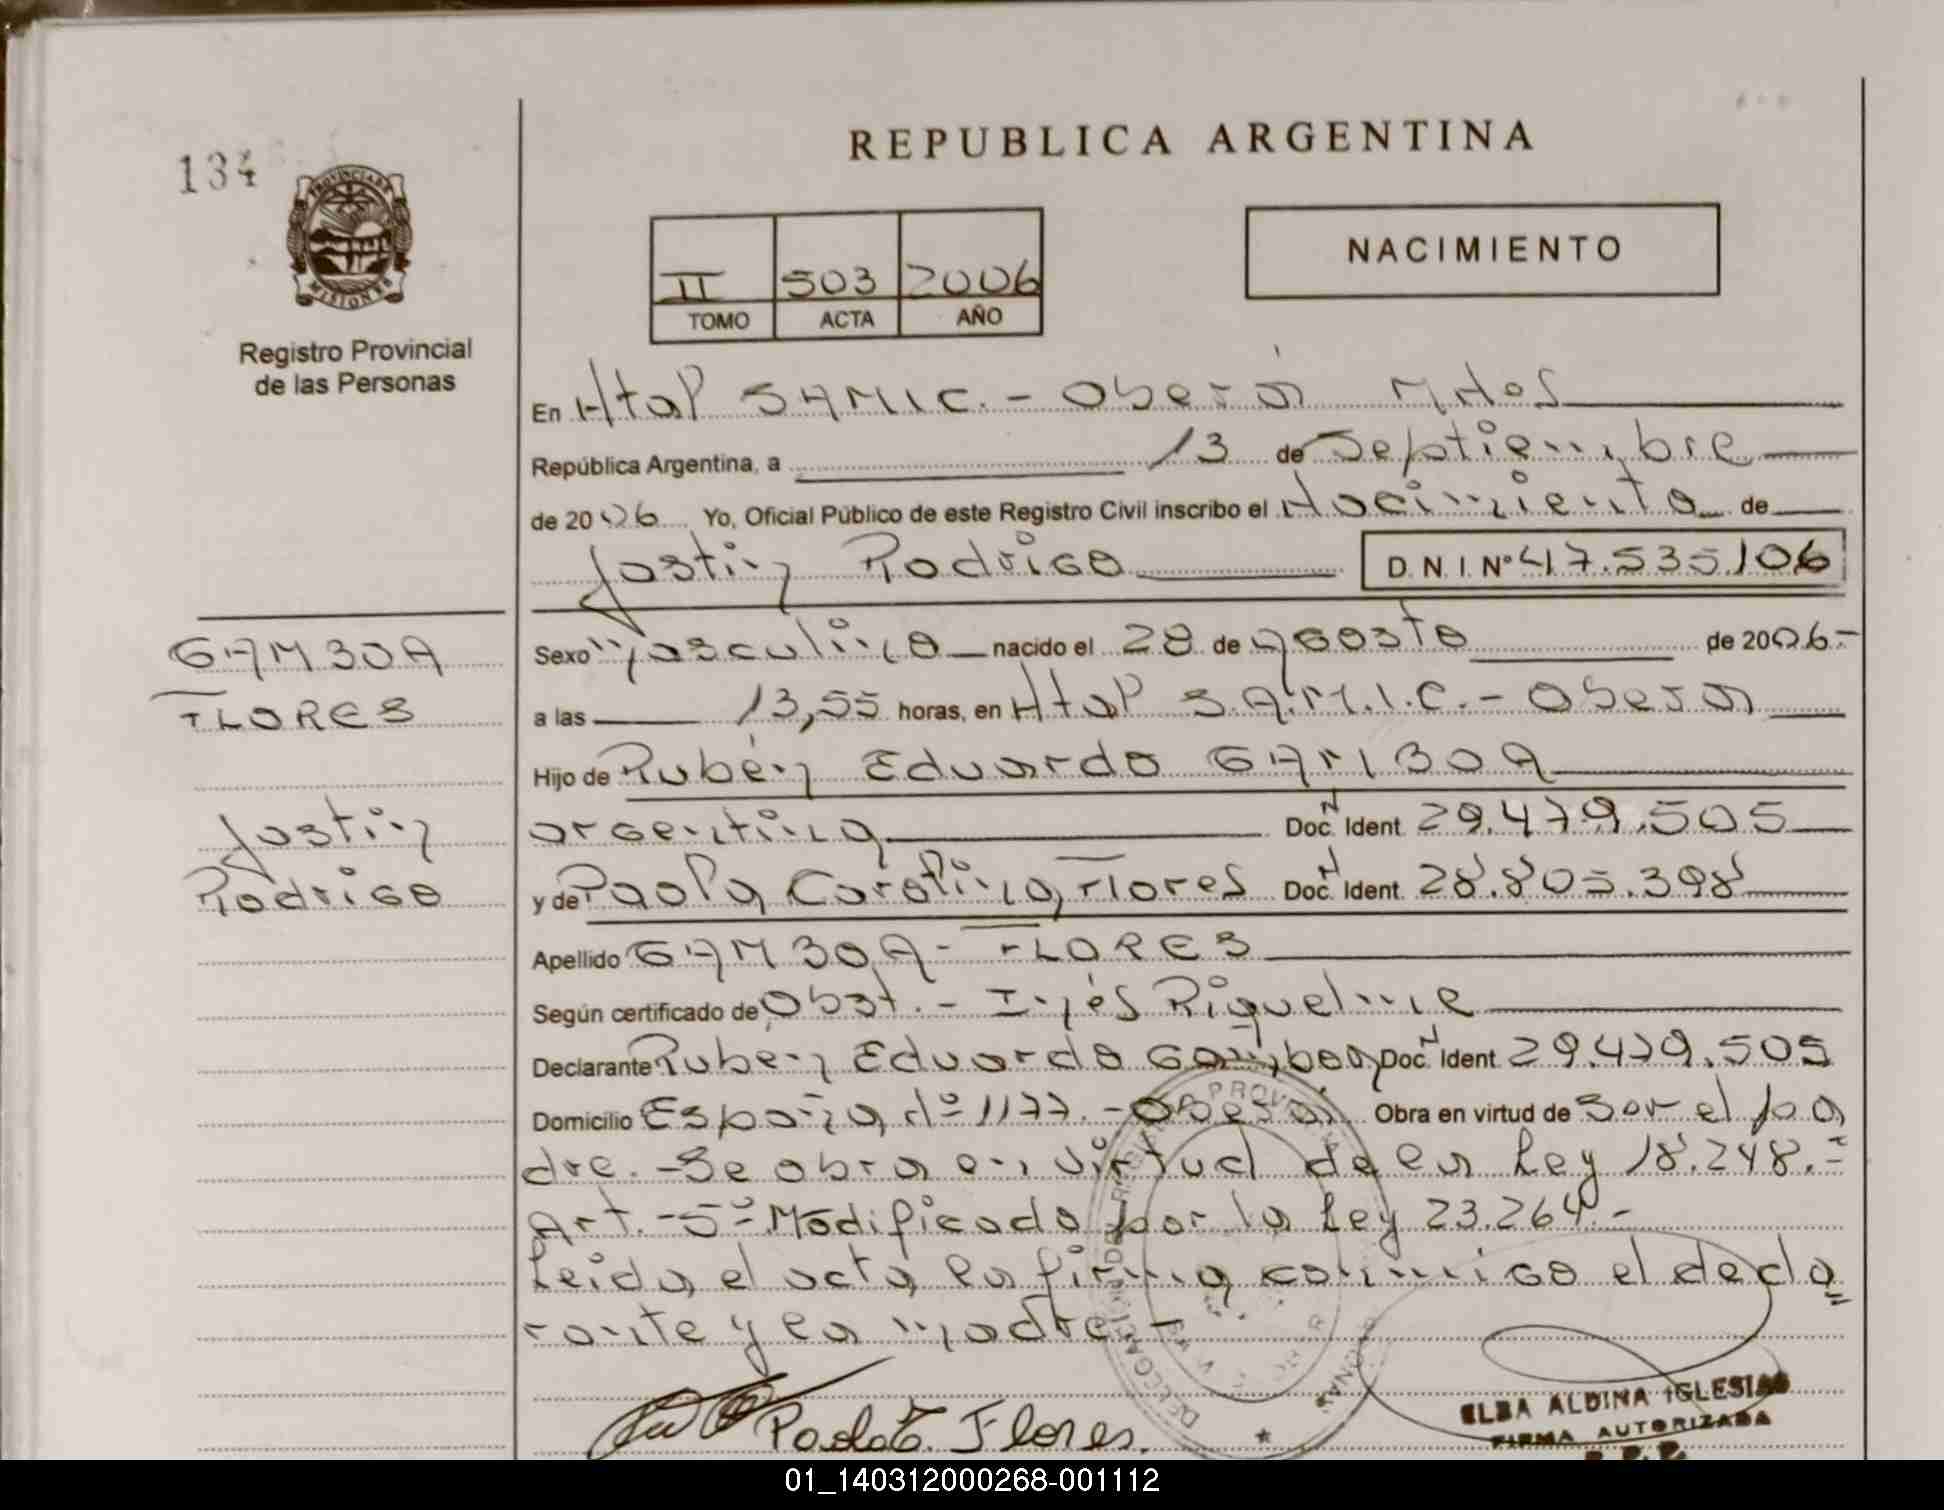 134
PROVINCIA DE
MISIONES
Registro Provincial
de las Personas
REPUBLICA ARGENTINA
II 503 2006
TOMO ACTA AÑO
NACIMIENTO
En Htal SAMIC.- Oberá Mnes
República Argentina, a 13 de Septiembre
de 2006 Yo, Oficial Público de este Registro Civil inscribo el Nacimiento de
Jostin Rodrigo D.N.I. Nº 47.535.106
GAMBOA
FLORES
Jostin
Rodrigo
Sexo Masculino nacido el 28 de agosto de 2006-
a las 13,55 horas, en Htal S.A.M.I.C.- Oberá
Hijo de Rubén Eduardo GAMBOA
argentina Doc. N Ident. 29.479.505
y de Paola Carolina Flores Doc. N Ident. 28.805.398
Apellido GAMBOA - FLORES
Según certificado de Obst. - Inés Riquelme
Declarante Ruben Eduardo Gamboa Doc. N Ident. 29.479.505
Domicilio España nº 1177.- Oberá Obra en virtud de Ser el pa
dre. - Se obra en virtud de la Ley 18.248.=
Art. - 5º Modificado por la Ley 23.264 -
Leida el acta, la firma conmigo el decla=
rante y la madre. -
Paola C. Flores.
ELBA ALDINA IGLESIAS
FIRMA AUTORIZADA
R. P. P.
01_140312000268-001112